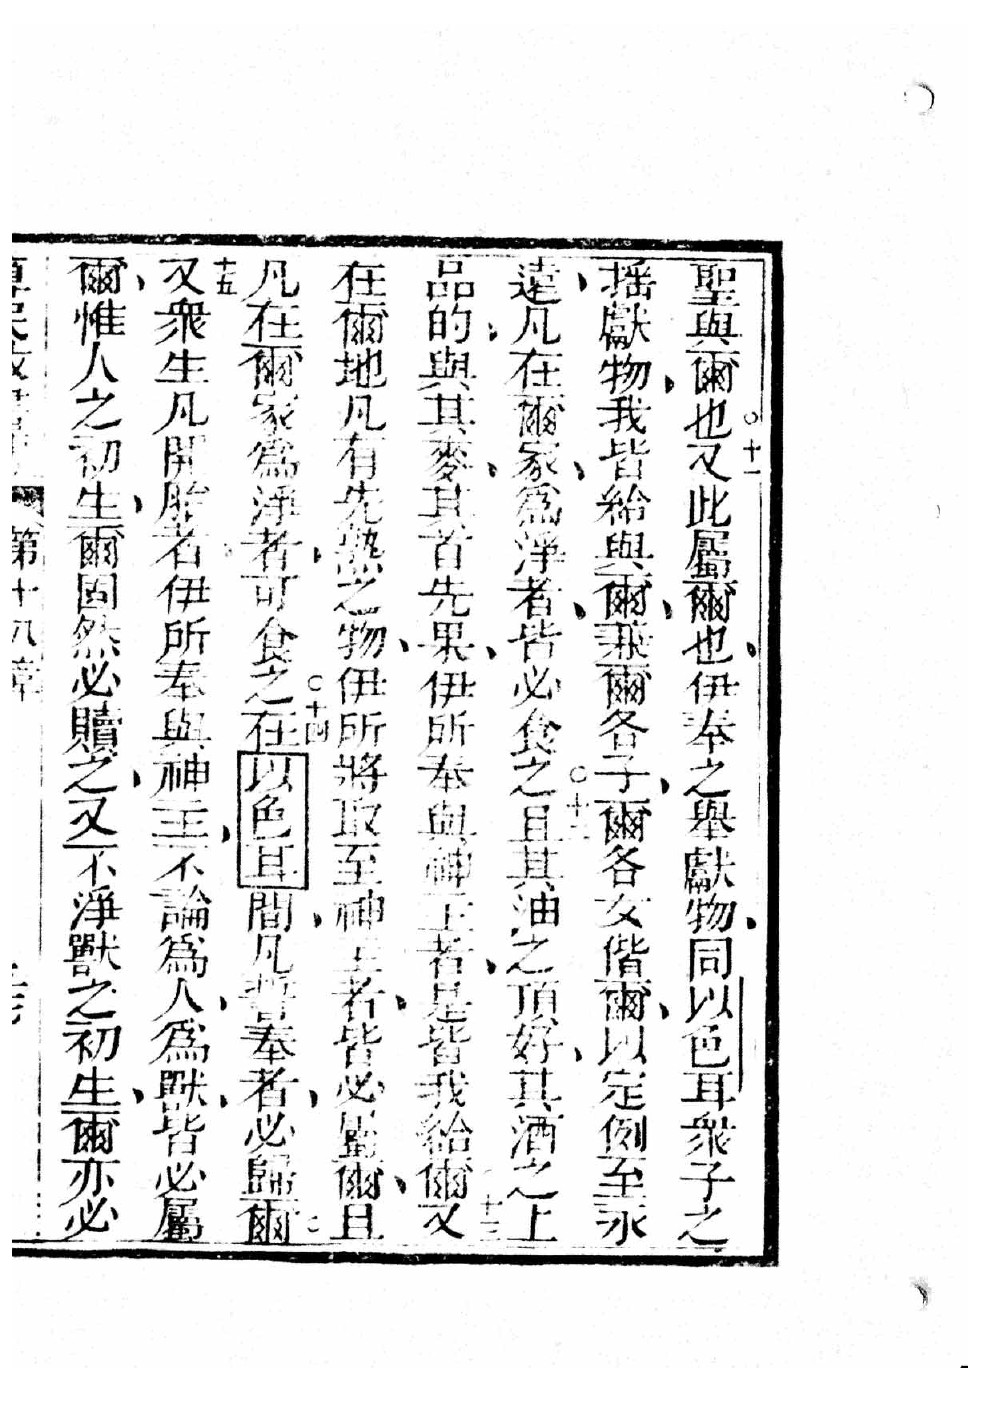 聖與爾也○十一又此屬爾也伊奉之舉獻物同以色耳衆子之
搖獻物我皆給與爾兼爾各子爾各女偕爾以定例至永
遠凡在爾家爲淨者皆必食之○十二且其油之頂好其酒之上
品的與其麥其首先果伊所奉與神主者是皆我給爾○十三又
在爾地凡有先熟之物伊所將取至神主者皆必屬爾且
凡在爾家爲淨者可食之○十四在以色耳間凡誓奉者必歸爾○
十五又衆生凡開胎者伊所奉與神主不論爲人爲獸皆必屬
爾惟人之初生爾固然必贖之又不淨獸之初生爾亦必
第十八章